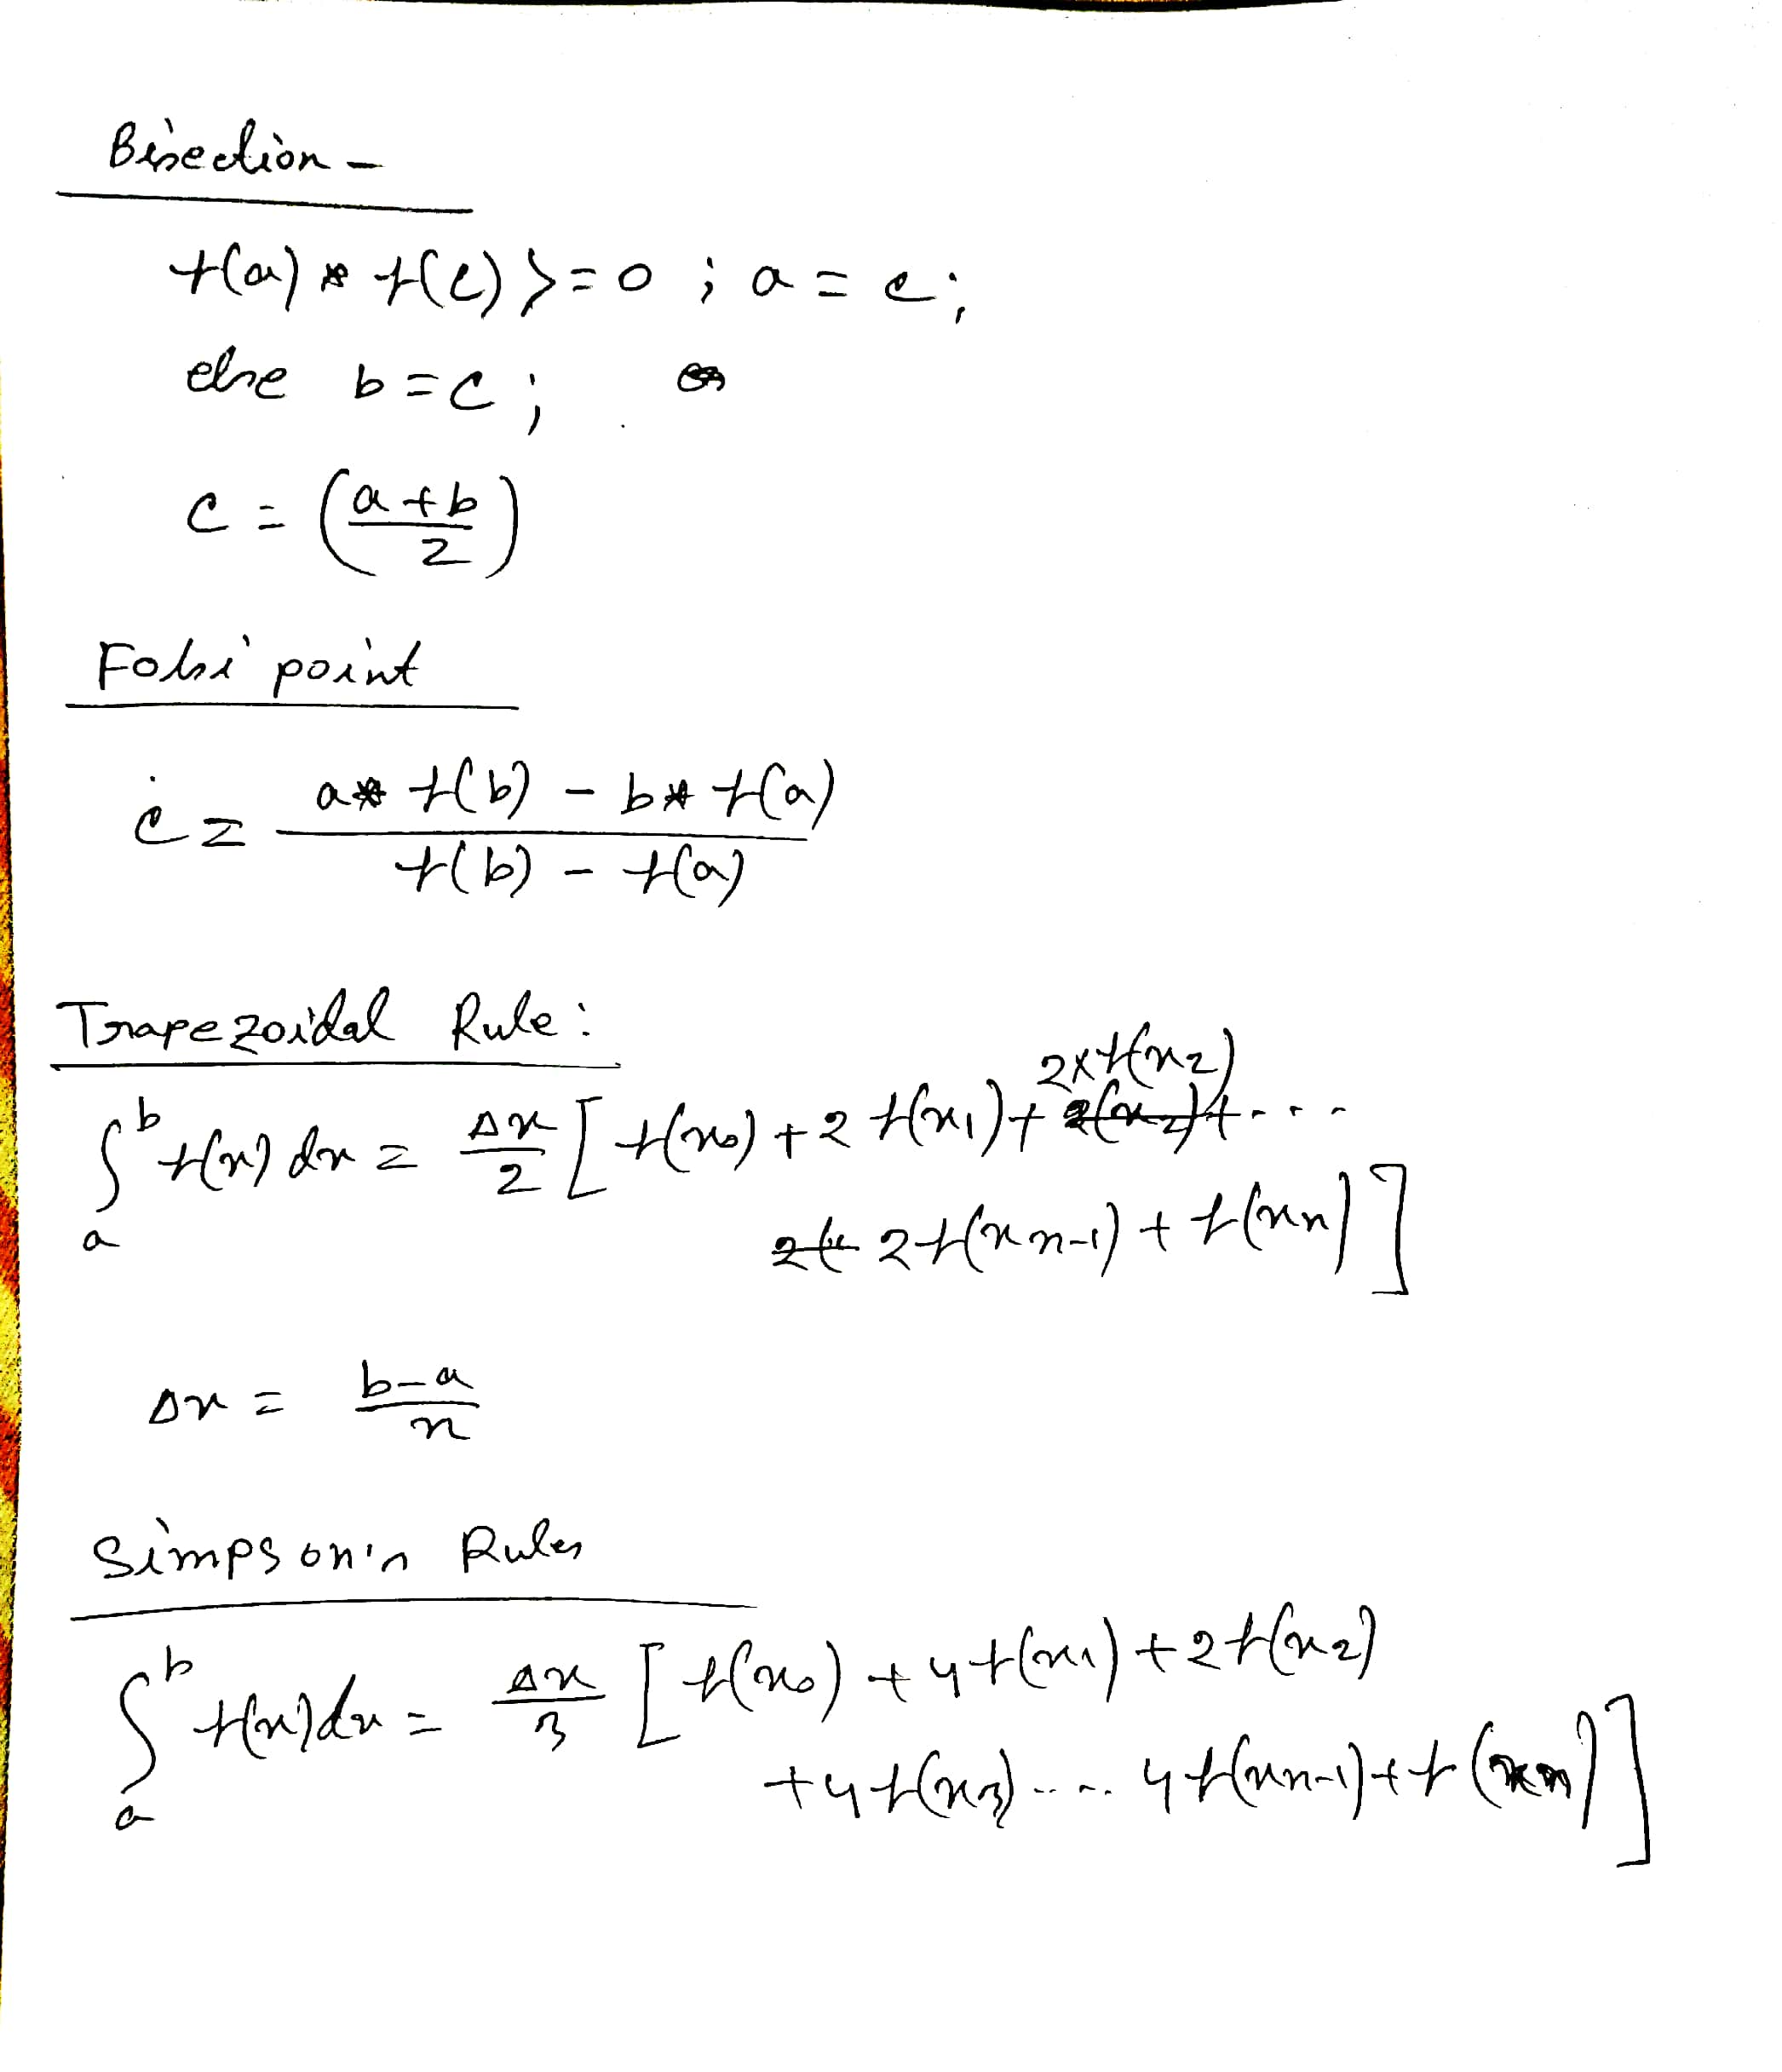 Bisection -
f(a) * f(c) >= 0 ; a = c;
else b = c;
c = (a+b / 2)
Folsi point
c = a* f(b) - b* f(a) / f(b) - f(a)
Trapezoidal Rule:
∫_a^b f(x) dx = Δx/2 [ f(x0) + 2 f(x1) + 2×f(x2) ....
2f(xn-1) + f(xn) ]
Δx = b-a / n
Simpson's Rules
∫_a^b f(x)dx = Δx/3 [ f(x0) + 4f(x1) + 2f(x2)
+4f(x3) ..... 4f(xn-1) + f(xn) ]